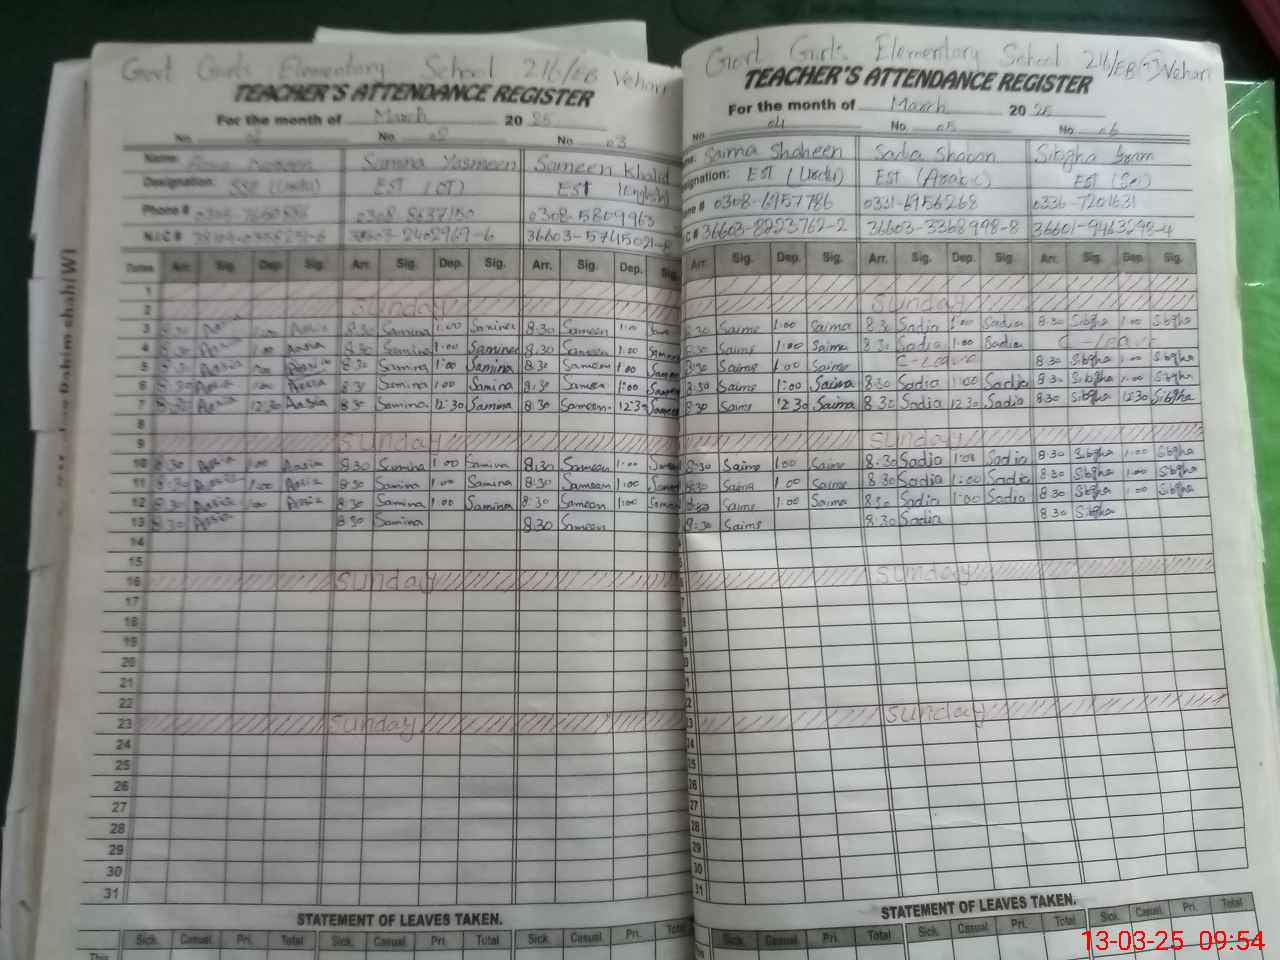 Govt Girls Elementary School 216/EB Vehari
TEACHER'S ATTENDANCE REGISTER
For the month of March 20 25
No. No. 02 No. 03
Name: Samina Yasmeen Sameen Khalid
Designation: SSE (Urdu) EST (CT) EST (English)
Phone # 0308-5809963
N.I.C #
Dates Arr. Sig. Dep. Sig. Arr. Sig. Dep. Sig. Arr. Sig. Dep. Sig.
1
2 Sunday
3 8:30 Aasia 1:00 Aasia 8:30 Samina 1:00 Samina 8:30 Sameen 1:00
4 8:30 Aasia 1:00 Aasia 8:30 Samina 1:00 Samina 8:30 Sameen 1:00 Sameen
5 8:30 Aasia 1:00 Aasia 8:30 Samina 1:00 Samina 8:30 Sameen 1:00 Sameen
6 8:30 Aasia 1:00 Aasia 8:30 Samina 1:00 Samina 8:30 Sameen 1:00 Sameen
7 8:30 Aasia 12:30 Aasia 8:30 Samina 12:30 Samina 8:30 Sameen 12:30 Sameen
8
9 Sunday
10 8:30 Aasia 1:00 Aasia 8:30 Samina 1:00 Samina 8:30 Sameen 1:00
11 8:30 Aasia 1:00 Aasia 8:30 Samina 1:00 Samina 8:30 Sameen 1:00
12 8:30 Aasia 1:00 Aasia 8:30 Samina 1:00 Samina 8:30 Sameen 1:00
13 8:30 Aasia 8:30 Samina 8:30 Sameen
14
15
16 Sunday
17
18
19
20
21
22
23 Sunday
24
25
26
27
28
29
30
31
STATEMENT OF LEAVES TAKEN.
Sick. Casual Pri. Total Sick. Casual Pri. Total Sick. Casual Pri. Total
This
Govt Girls Elementary School 216/EB Vehari
TEACHER'S ATTENDANCE REGISTER
For the month of March 20 25
No. 04 No. 05 No. 06
Saima Shaheen Sadia Shaban Sibgha
EST (Urdu) EST (Arabic) EST (Sci)
0308-6957786 0331-6956268 0336-7201631
36603-8223762-2 36603-3368998-8 36601-9463298-4
Arr. Sig. Dep. Sig. Arr. Sig. Dep. Sig. Arr. Sig. Dep. Sig.
Sunday
8:30 Saima 1:00 Saima 8:30 Sadia 1:00 Sadia 8:30 Sibgha 1:00 Sibgha
8:30 Saima 1:00 Saima 8:30 Sadia 1:00 Sadia C-leave
8:30 Saima 1:00 Saima C-leave 8:30 Sibgha 1:00 Sibgha
8:30 Saima 1:00 Saima 8:30 Sadia 1:00 Sadia 8:30 Sibgha 1:00 Sibgha
8:30 Saima 12:30 Saima 8:30 Sadia 12:30 Sadia 8:30 Sibgha 12:30 Sibgha
Sunday
8:30 Saima 1:00 Saima 8:30 Sadia 1:00 Sadia 8:30 Sibgha 1:00 Sibgha
8:30 Saima 1:00 Saima 8:30 Sadia 1:00 Sadia 8:30 Sibgha 1:00 Sibgha
8:30 Saima 1:00 Saima 8:30 Sadia 1:00 Sadia 8:30 Sibgha 1:00 Sibgha
8:30 Saima 8:30 Sadia 8:30 Sibgha
Sunday
Sunday
STATEMENT OF LEAVES TAKEN.
Sick. Casual Pri. Total Sick. Casual Pri. Total Sick. Casual Pri. Total
13-03-25 09:54